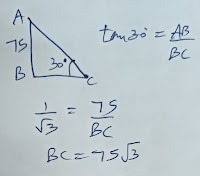 A
75
B
30°
C
tan30° = AB/BC
1/√3 = 75/BC
BC = 75√3